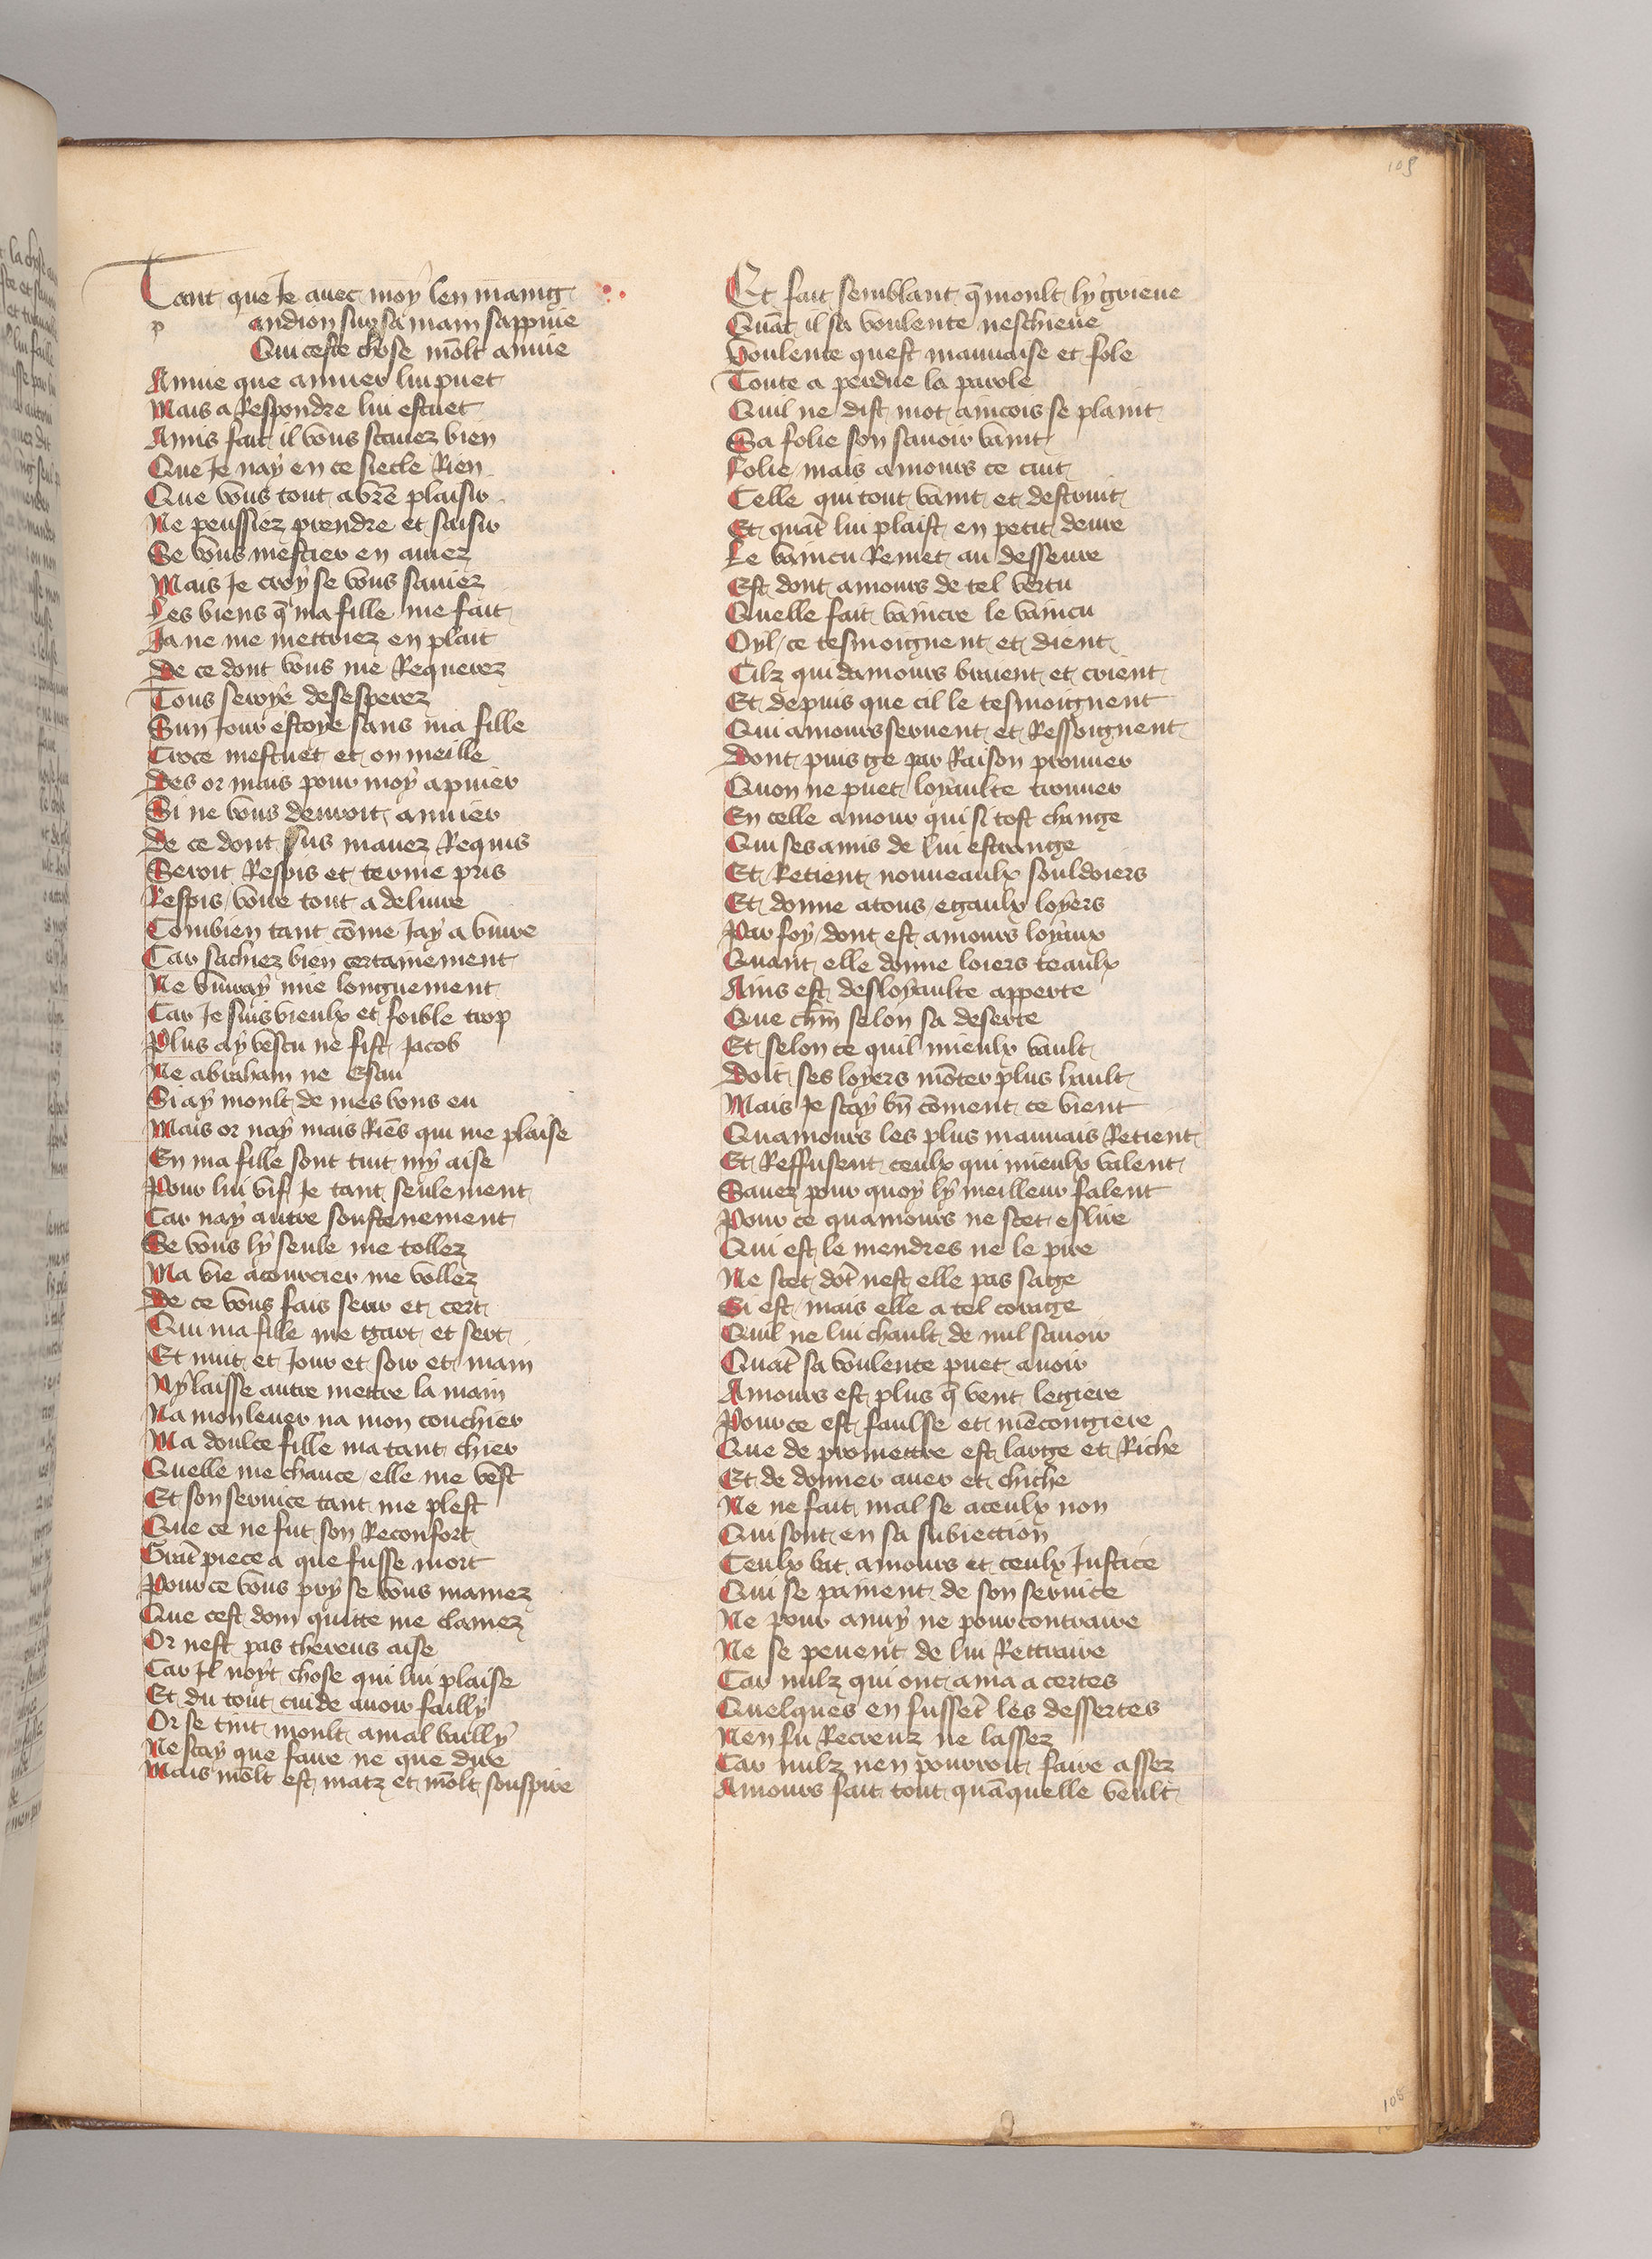 105
Tant que Je auec moy len maing
p andion sur sa main sappuie
Qui ceste chose molt anuie
Anuie que anuier lui puet
Mais a Respondre lui estuet
Amis fait il vous scauez bien
Que Je nay en ce siecle Rien
Que vous tout a vre plaisir
Ne peussiez prendre et saisir
Se vous mestier en auiez
Mais Je croy se vous sauiez
Les biens q ma fille me fait
Ja ne me mettriez en plait
De ce dont vous me Requerez
Tous seroye desesperez
Sun Jour estoye sans ma fille
Croce mestuet et
Des or mais pour moy apuier
Si ne vous deuroit anuier
De ce dont vus mauez Requis
Seroit Respis et terme pris
Respis voire tout a deliure
Combien tant come Jay a viure
Car sachiez bien certainement
Ne viuray mie longuement
Car Je suis vieulx et foible trop
Plus ay vescu ne fist Jacob
Ne abraham ne Esau
Si ay moult de mes bons eu
Mais or nay mais Ries qui me plaise
En ma fille sont tuit my aise
Pour lui vif Je tant seulement
Car nay autre soustenement
Se vous ly seule me tollez
Ma vie acourcier me vollez
De ce vous fais seur et cert
Qui ma fille me gart et sert
Et nuit et Jour et soir et main
Ny laisse autre mettre la main
Na mon leuer na mon couchier
Ma doulce fille ma tant chier
Quelle me chauce elle me vest
Et son seruice tant me plest
Que ce ne fut son Reconfort
Grat piece a que fusse mort
Pour ce vous pry se vous mamez
Que cest dom quitte me clamez
Or nest pas thereus aise
Car Il noyt chose qui lui plaise
Et du tout cuide auoir failly
Or se tint moult a mal bailly
Ne scay que faire ne que dire
Mais molt est matz et molt souspire
Et fait semblant q moult ly grieue
Quat il sa voulente neschieue
Voulente quest mauuaise et fole
Toute a perdue la parole
Quil ne dist mot aincois se plaint
Sa folie son sauoir vaint
Folie mais amours ce cuit
Celle qui tout vaint et destruit
Et quat lui plaist en petit deure
Le vaincu Remet au desseure
Est dont amours de tel vertu
Quelle fait vaincre le vaincu
Oyl ce tesmoignent et dient
Cilz qui damours bruient et crient
Et depuis que cil le tesmoignent
Qui amours seruent et Ressoignent
Dont puis ge par Raison prouuer
Quon ne puet loyaulte trouuer
En celle amour qui si tost change
Qui ses amis de lui estrange
Et Retient nouueaulx souldoiers
Et donne a tous egaulx loyers
Par foy dont est amours loyaux
Quant elle donne loiers teaulx
Ains est desloyaulte apperte
Que chm selon sa deserte
Et selon ce quil mieulx vault
Doit ses loyers moter plus hault
Mais Je scay bn coment ce vient
Quamours les plus mauuais Retient
Et Reffusent ceulx qui mieulx valent
Sauez pour quoy ly meilleur falent
Pour ce quamours ne scet eslire
Qui est le mendres ne le pire
Ne scet dot nest elle pas sage
Si est mais elle a tel corage
Quil ne lui chault de nul sauoir
Quat sa voulente puet auoir
Amours est plus q vent legiere
Pour ce est faulse et mecongiere
Que de promettre est large et Riche
Et de donner auer et chiche
Ne ne fait mal se a ceulx non
Qui sont en sa subiection
Ceulx bat amours et ceulx Justice
Qui se painent de son seruice
Ne pour anuy ne pour contraire
Ne se peuent de lui Rettraire
Car nulz qui ont ama a certes
Quelques en fusset les dessertes
Nen fu Recreuz ne lassez
Car nulz nen pourroit faire assez
Amours fait tout quaquelle veult
105